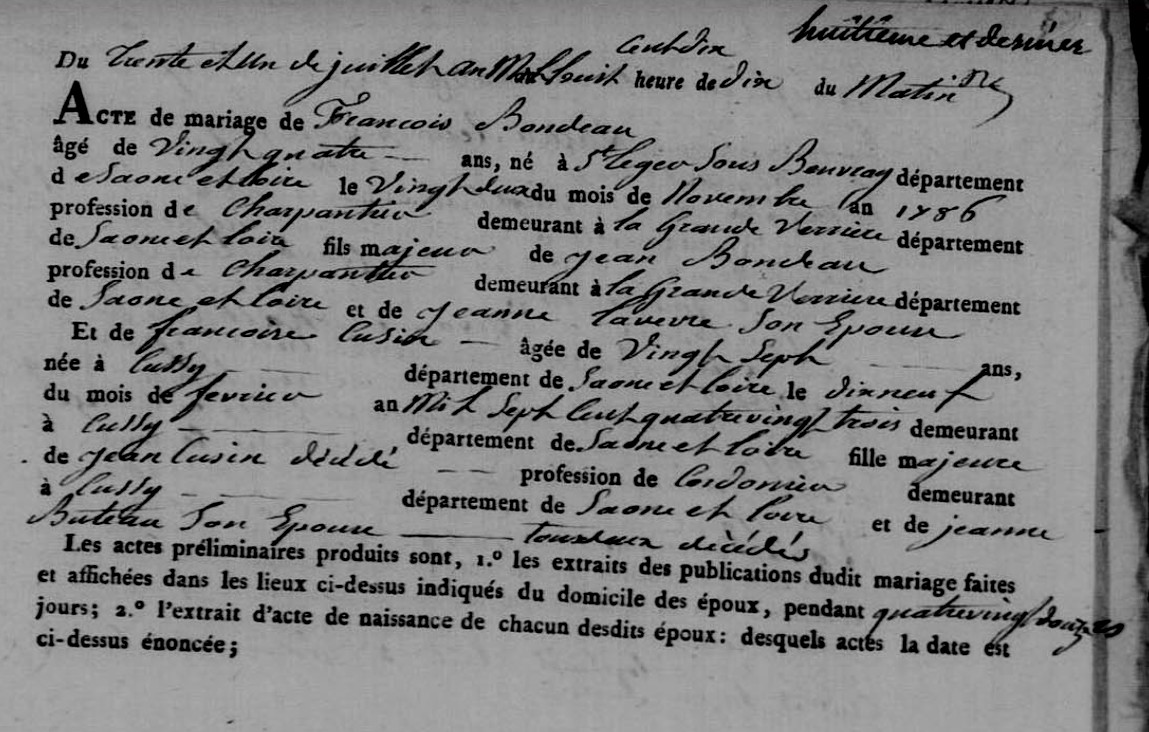 huitieme et dernier
Du trente et un de juillet an Mil huit cent dix heure de dix du Matin
ACTE de mariage de Francois Bondeau
âgé de Vingt quatre ans, né à St leger Sous Beuvray département
de Saone et loire le Vingt deux du mois de Novembre an 1786
profession de Charpantier demeurant à la Grande Verriere département
de Saone et loire fils majeur de jean Bondeau
profession de Charpantier demeurant à la Grande Verriere département
de Saone et loire et de jeanne laverre Son Epouse
Et de francoise Cusin âgée de Vingt Sept ans,
née à Cussy département de Saone et loire le dixneuf
du mois de fevrier an Mil Sept Cent quatrevingt trois demeurant
à Cussy département de Saone et loire fille majeure
de jean Cusin dédédé profession de Cordonier demeurant
à Cussy département de Saone et loire et de jeanne
Buteau Son Epouse tousdeux décédés
Les actes préliminaires produits sont, 1.º les extraits des publications dudit mariage faites
et affichées dans les lieux ci-dessus indiqués du domicile des époux, pendant quatrevingt douze
jours; 2.º l'extrait d'acte de naissance de chacun desdits époux: desquels actes la date est
ci-dessus énoncée;